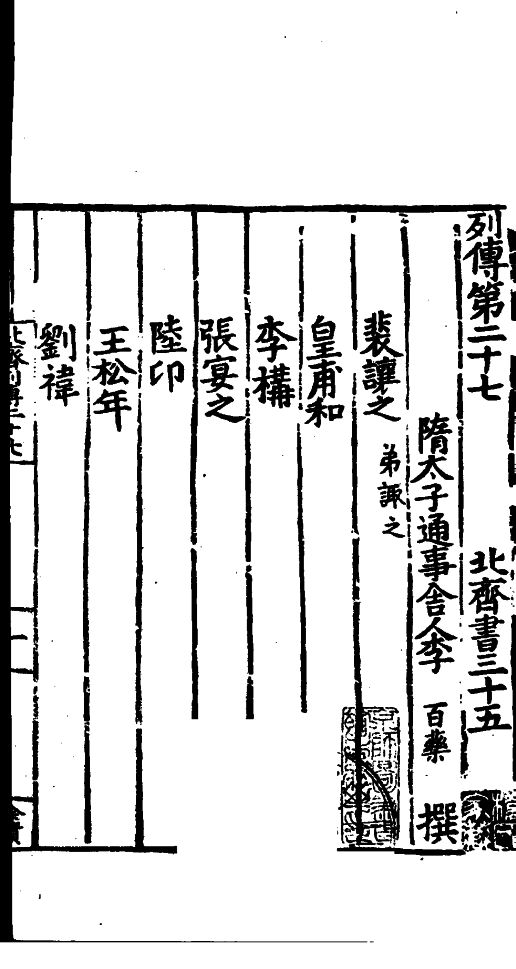 列傳第二十七 北齊書三十五
隋太子通事舍人李 百藥 撰
裴讓之 弟諏之
皇甫和
李構
張宴之
陸卬
王松年
劉禕
北齊列傳二十七